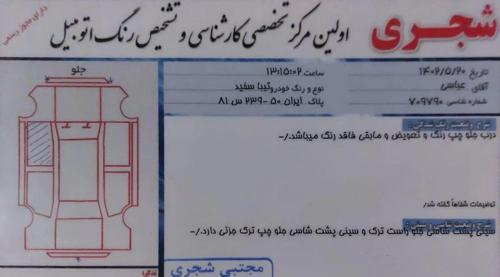 شجری
اولین مرکز تخصصی کارشناسی و تشخیص رنگ اتومبیل
دارای مجوز رسمی
تاریخ ۱۴۰۲/۵/۲۰ ساعت ۱۳:۱۵:۰۲
آقای عباسی نوع و رنگ خودرو تیبا سفید
شماره شاسی ۷۰۹۷۹۰ پلاک ایران ۵۰ -۲۳۹ س ۸۱
جلو
شرح وضعیت رنگ شدگی:
درب جلو چپ رنگ و تعویض و مابقی فاقد رنگ میباشد./-
توضیحات شفاها گفته شد/
سینی پشت شاسی جلو راست ترک و سینی پشت شاسی جلو چپ ترک جزئی دارد./-
مجتبی شجری